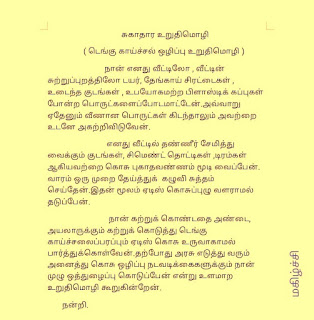 சுகாதார உறுதிமொழி
( டெங்கு காய்ச்சல் ஒழிப்பு உறுதிமொழி )
நான் எனது வீட்டிலோ , வீட்டின்
சுற்றுப்புறத்திலோ டயர், தேங்காய் சிரட்டைகள் ,
உடைந்த குடங்கள் , உபயோகமற்ற பிளாஸ்டிக் கப்புகள்
போன்ற பொருட்களைப்போடமாட்டேன்.அவ்வாறு
ஏதேனும் வீணான பொருட்கள் கிடந்தாலும் அவற்றை
உடனே அகற்றிவிடுவேன்.
எனது வீட்டில் தண்ணீர் சேமித்து
வைக்கும் குடங்கள், சிமெண்ட் தொட்டிகள் ,டிரம்கள்
ஆகியவற்றை கொசு புகாதவண்ணம் மூடி வைப்பேன்.
வாரம் ஒரு முறை தேய்த்துக் கழுவி சுத்தம்
செய்தேன்.இதன் மூலம் ஏடிஸ் கொசுப்புழு வளராமல்
தடுப்பேன்.
நான் கற்றுக் கொண்டதை அண்டை,
அயலாருக்கும் கற்றுக் கொடுத்து டெங்கு
காய்ச்சலைப்பரப்பும் ஏடிஸ் கொசு உருவாகாமல்
பார்த்துக்கொள்வேன்.தற்போது அரசு எடுத்து வரும்
அனைத்து கொசு ஒழிப்பு நடவடிக்கைகளுக்கும் நான்
முழு ஒத்துழைப்பு கொடுப்பேன் என்று உளமார
உறுதிமொழி கூறுகின்றேன்.
நன்றி.
மகிழ்ச்சி